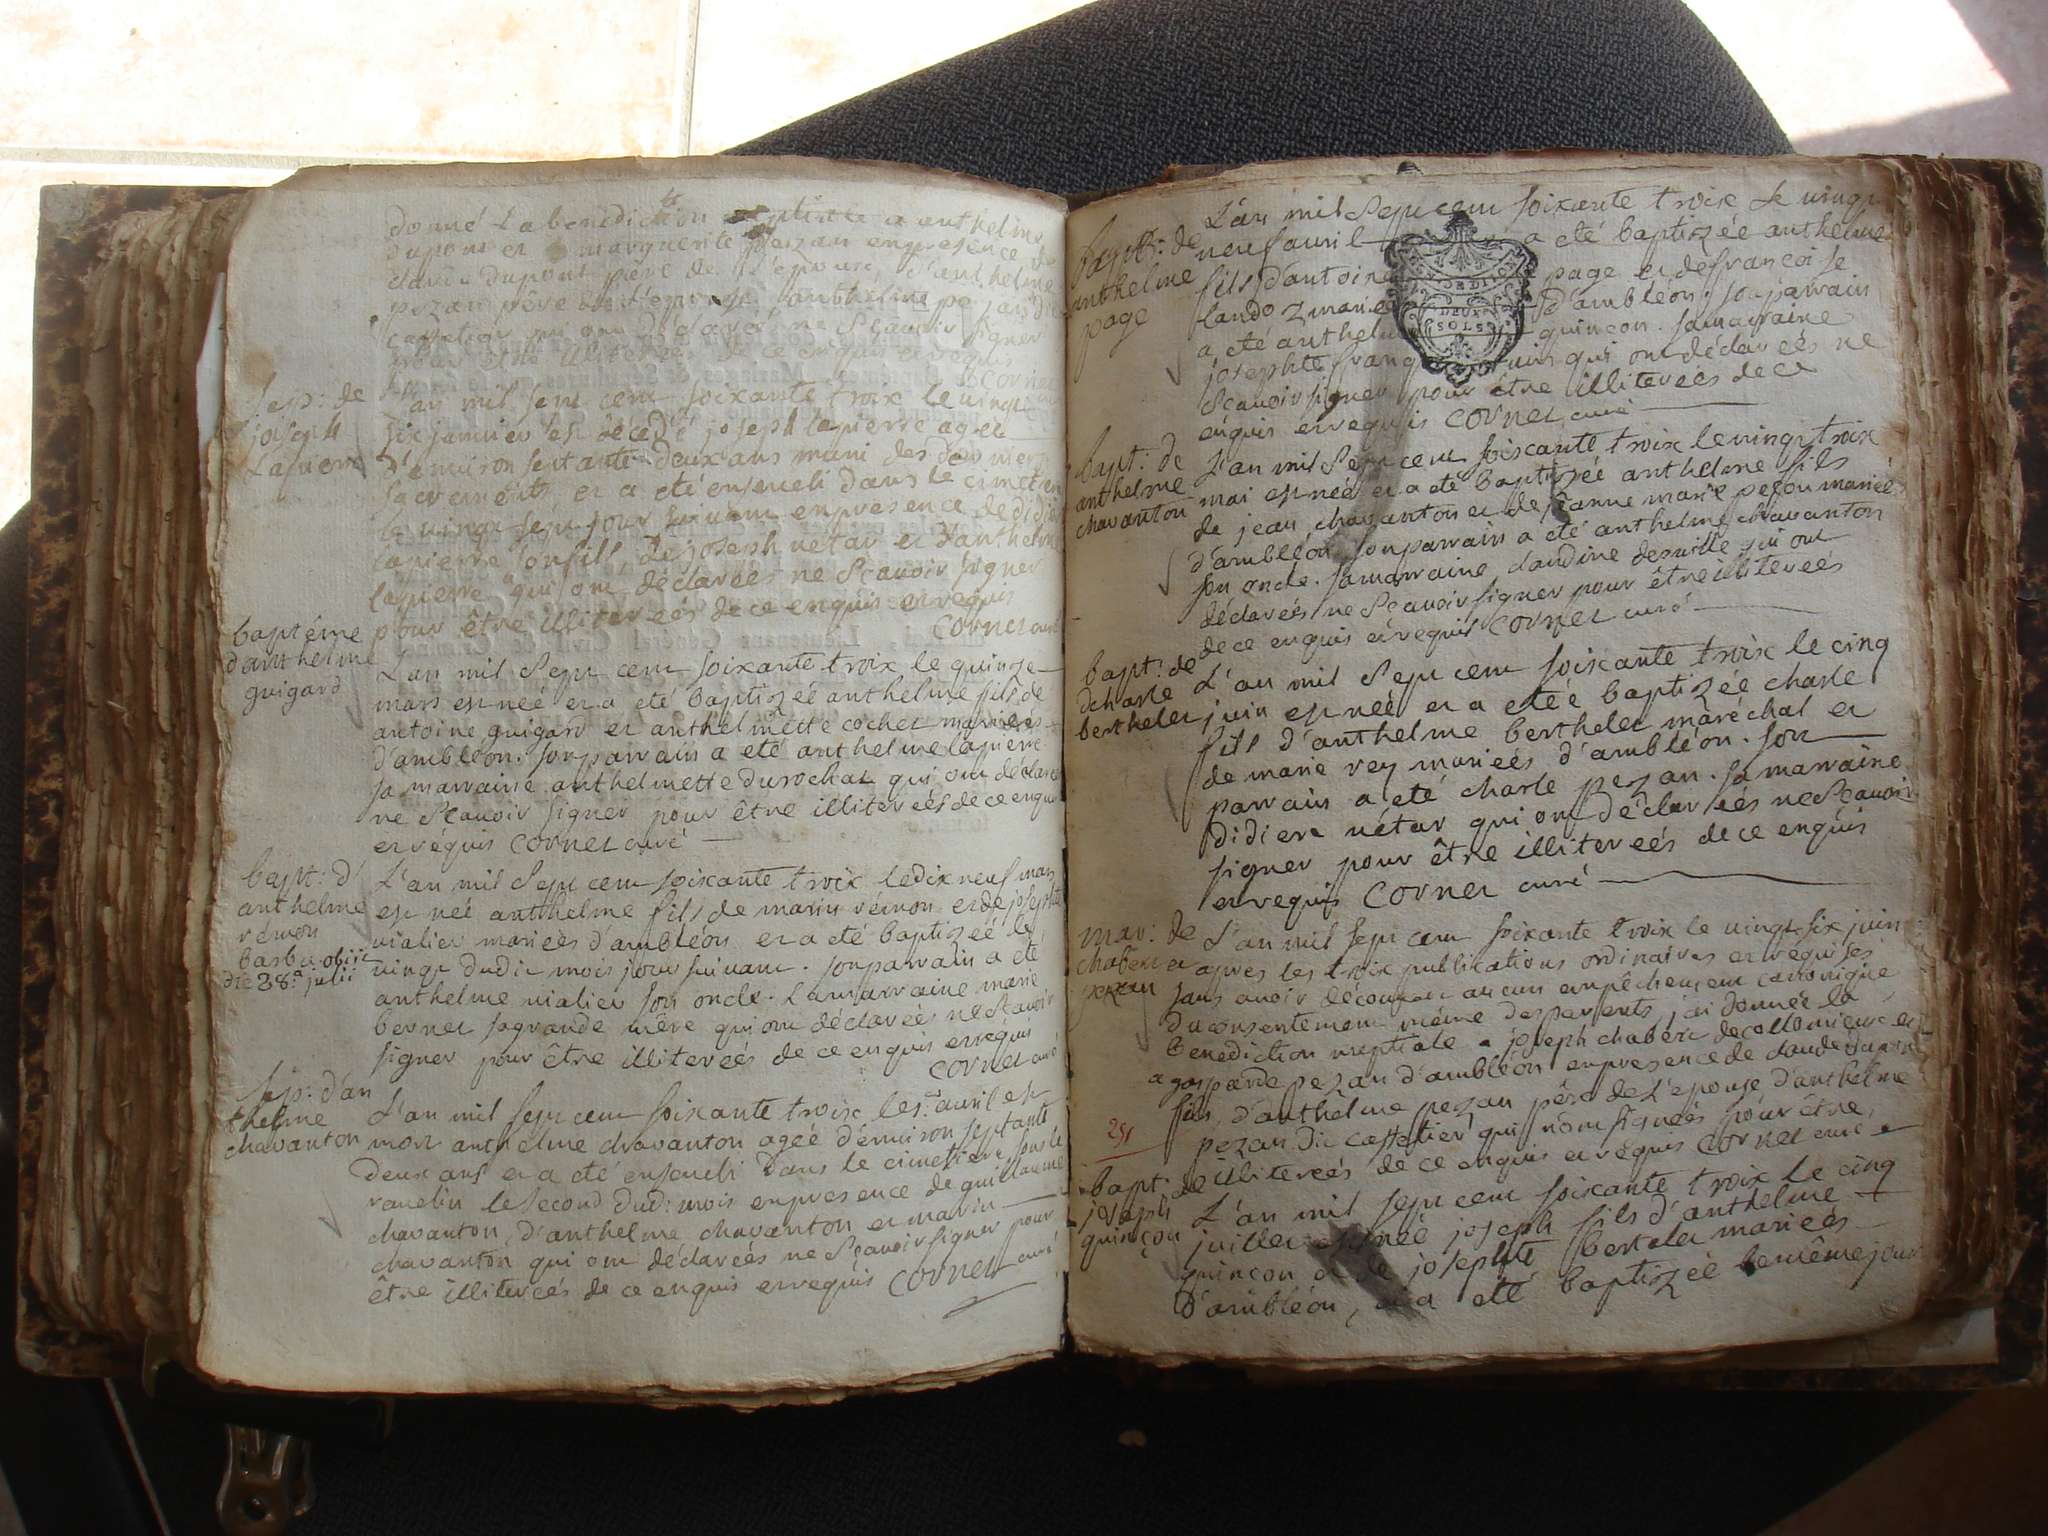 donné la benediction nuptiale a anthelme
dupont et marguerite pezan en presence de
claude dupont père de l'epoux, d'anthelme
pezan père de l'epouse anthelme pezan dit
cattelier qui ont déclareés ne Sçavoir signer
pour être illitereés de ce enquis et requis
Cornet
Sep: de
joseph
Lapierre
L'an mil sept cent soixante troix le vingt
six janvier est décedé joseph lapierre ageé
d'environ septante deux ans muni des derniers
sacrements et a eté enseveli dans le cimetiere
le vingt sept jour suivant en presence de didier
lapierre son fils, de joseph nétar et d'anthelme
lapierre qui ont déclareés ne Sçavoir signer
pour être illitereés de ce enquis et requis
Cornet curé
baptême
d'anthelme
guigard
L'an mil Sept cent soixante troix le quinze
mars est neé et a eté baptizeé anthelme fils de
antoine guigard et anthelmette cochet marieés
d'ambléon. son parrain a eté anthelme lapierre
sa marraine anthelmette durochat qui ont déclareés
ne Sçavoir signer pour être illitereés de ce enquis
et réquis Cornet curé
bapt: d'
anthelme
rémon
barbu obiit
die 28a julii
L'an mil Sept cent soixante troix le dix neuf mars
est neé anthelme fils de marin remon et de josephte
vialier marieés d'ambléon et a eté baptizeé le
vingt dudit mois jour suivant. son parrain a eté
anthelme vialier son oncle. La marraine marie
bernet sa grande mère qui ont déclareés ne Sçavoir
signer pour être illitereés de ce enquis et réquis
Cornet curé
Sep: d'an
thelme
chavanton
L'an mil sept cent soixante troix le 1er avril est
mort anthelme chavanton ageé d'environ septante
deux ans et a eté enseveli dans le cimetiere sous le
ravelin le second dud: mois en presence de guillaume
chavanton, d'anthelme chavanton et marin
chavanton qui ont déclareés ne Sçavoir signer pour
être illitereés de ce enquis et requis Cornet curé
bapt: de
anthelme
page
L'an mil Sept cent soixante troix Le vingt
neuf avril a eté baptizeé anthelme
fils d'antoine page et de françoise
landoz marieés d'ambléon. son parrain
a eté anthelme quinçon. sa marraine
josephte qui ont déclareés ne
Sçavoir signer pour être illitereés de ce
enquis et requis Cornet curé
bapt: de
anthelme
chavanton
L'an mil Sept cent soixante troix le vingt troix
mai est neé et a eté baptizeé anthelme fils
de jean chavanton et de jeanne marie peçou marieés
d'ambléon. son parrain a eté anthelme chavanton
son oncle. sa marraine claudine derville qui ont
déclareés ne Sçavoir signer pour être illitereés
de ce enquis et requis Cornet curé
bapt: de
charle
berthelet
L'an mil Sept cent soixante troix le cinq
juin est neé et a eté baptizeé charle
fils d'anthelme berthelet maréchal et
de marie rey marieés d'ambléon. son
parrain a eté charle pezan. sa marraine
didiere nétar qui ont déclareés ne Sçavoir
signer pour être illitereés de ce enquis
et requis Cornet curé
mar: de
chabert et
pezan
L'an mil sept cent soixante troix le vingt six juin
apres les troix publications ordinaires et requises
sans avoir découvert aucun empêchement canonique
du consentement même des parents j'ai donneé la
Benediction nuptiale a joseph chabert de collomieux et
a gasparde pezan d'ambléon en presence de claude dupont
fils, d'anthelme pezan père de l'epouse d'anthelme
pezan dit cattelier qui n'ont signeés pour être
illitereés de ce enquis et réquis Cornet curé
251
bapt: de
joseph
quinçon
L'an mil sept cent soixante troix le cinq
juillet est neé joseph fils d'anthelme
quinçon et de josephte bertelet marieés
d'ambléon, et a eté baptizeé le même jour
DEUX
SOLS